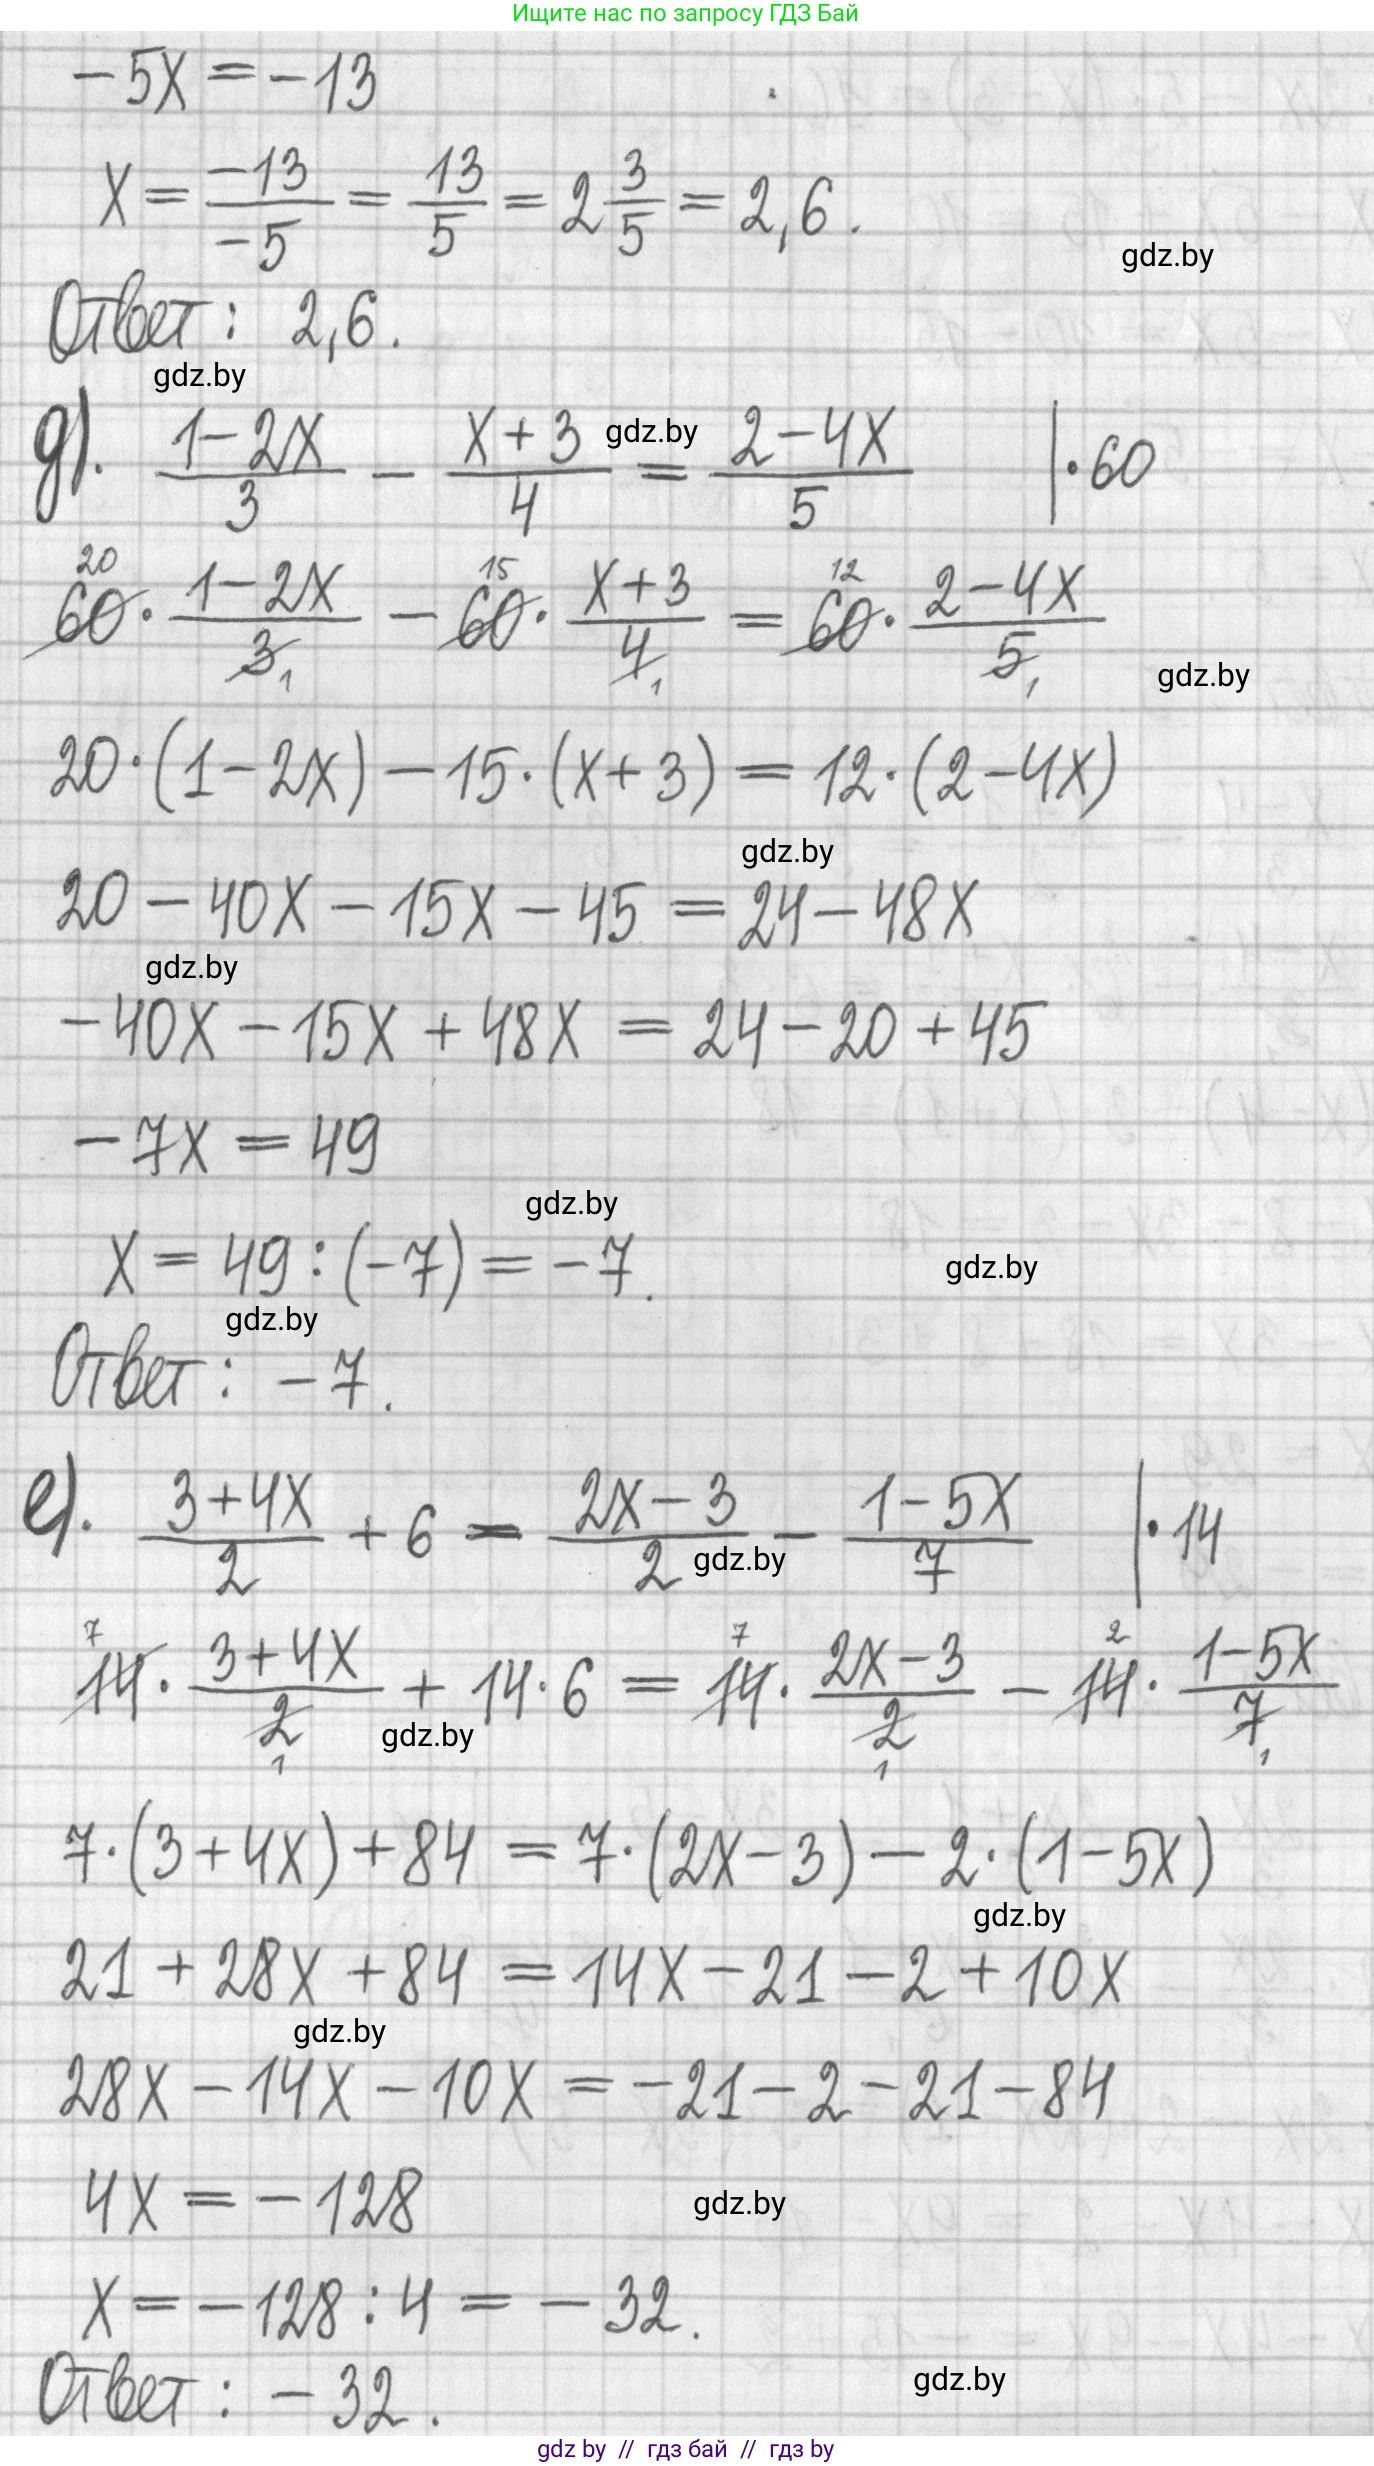 Ищите нас по запросу ГДЗ Бай
-5x = -13
x = -13/-5 = 13/5 = 2 3/5 = 2,6.
gdz.by
Ответ: 2,6.
gdz.by
д). (1-2x)/3 - (x+3)/4 gdz.by = (2-4x)/5 |·60
20 15 12
60 · (1-2x)/3 - 60 · (x+3)/4 = 60 · (2-4x)/5
1 1 1
gdz.by
20·(1-2x) - 15·(x+3) = 12·(2-4x)
gdz.by
20 - 40x - 15x - 45 = 24 - 48x
gdz.by
-40x - 15x + 48x = 24 - 20 + 45
-7x = 49
gdz.by
x = 49 : (-7) = -7.
gdz.by
gdz.by
Ответ: -7.
е). (3+4x)/2 + 6 = (2x-3)/2 gdz.by - (1-5x)/7 |·14
7 7 2
14 · (3+4x)/2 + 14·6 = 14 · (2x-3)/2 - 14 · (1-5x)/7
gdz.by
1 1 1
7·(3+4x) + 84 = 7·(2x-3) - 2·(1-5x)
gdz.by
21 + 28x + 84 = 14x - 21 - 2 + 10x
gdz.by
28x - 14x - 10x = -21 - 2 - 21 - 84
4x = -128
gdz.by
x = -128 : 4 = -32.
gdz.by
Ответ: -32.
gdz by // гдз бай // гдз by